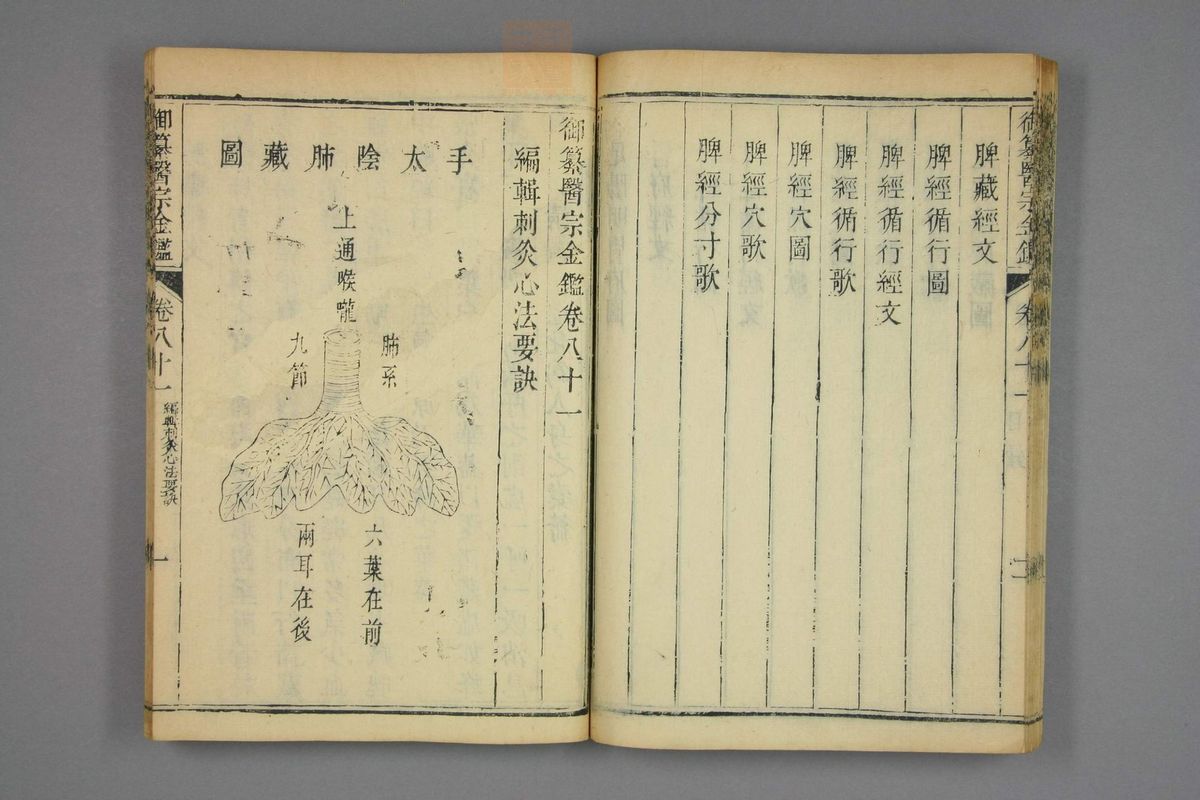 御纂醫宗金鑑
卷八十一
二
脾藏經文
脾經循行圖
脾經循行經文
脾經循行歌
脾經穴圖
脾經穴歌
脾經分寸歌
御纂醫宗金鑑卷八十一
編輯刺灸心法要訣
手太陰肺藏圖
上通喉嚨
肺系
九節
六葉在前
兩耳在後
御纂醫宗金鑑
卷八十一
編輯刺灸心法要訣
一